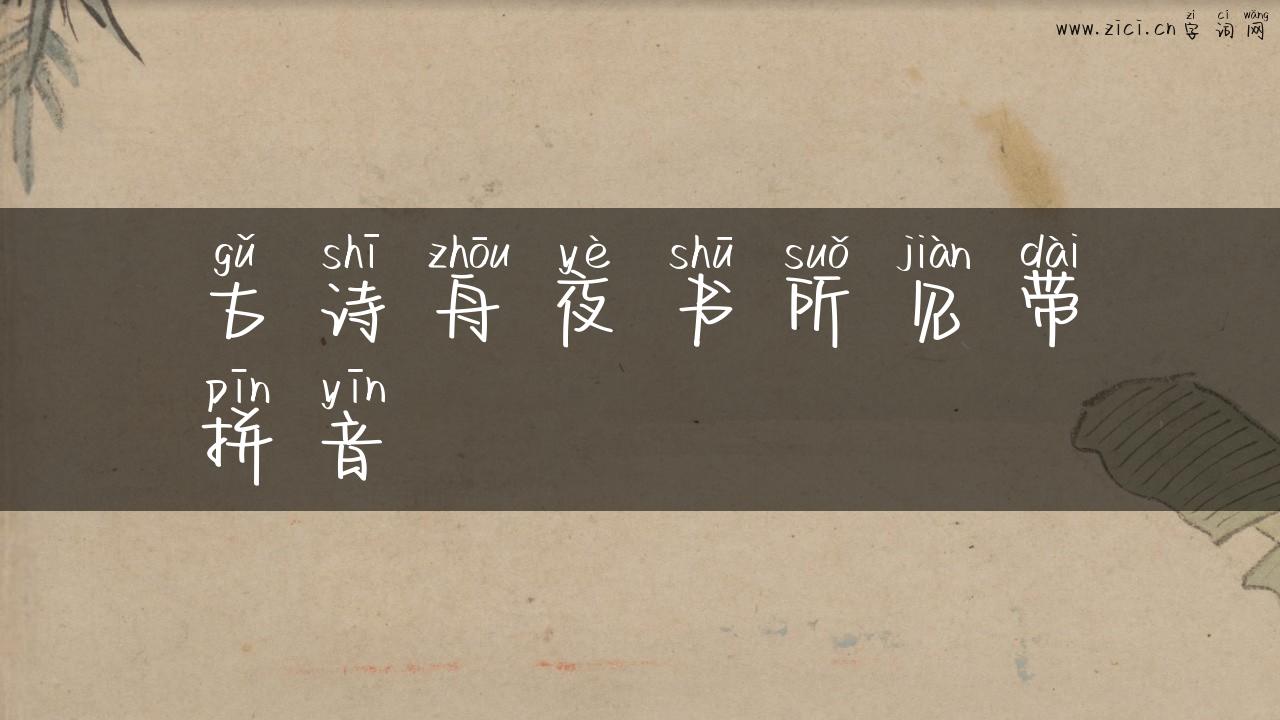 zi ci wǎng
www.zici.cn 字词网
gǔ shī zhōu yè shū suǒ jiàn dài
古诗舟夜书所见带
pīn yīn
拼音